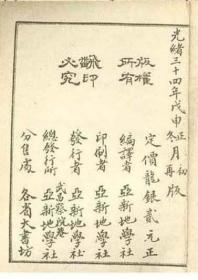 光緒三十四年戊申正月初版
冬月再版
版權所有
翻印必究
定價龍銀貳元正
編譯者 亞新地學社
印刷者 亞新地學社
發行者 亞新地學社
總發行所 武昌察院坡 亞新地學社
分售處 各省大書坊